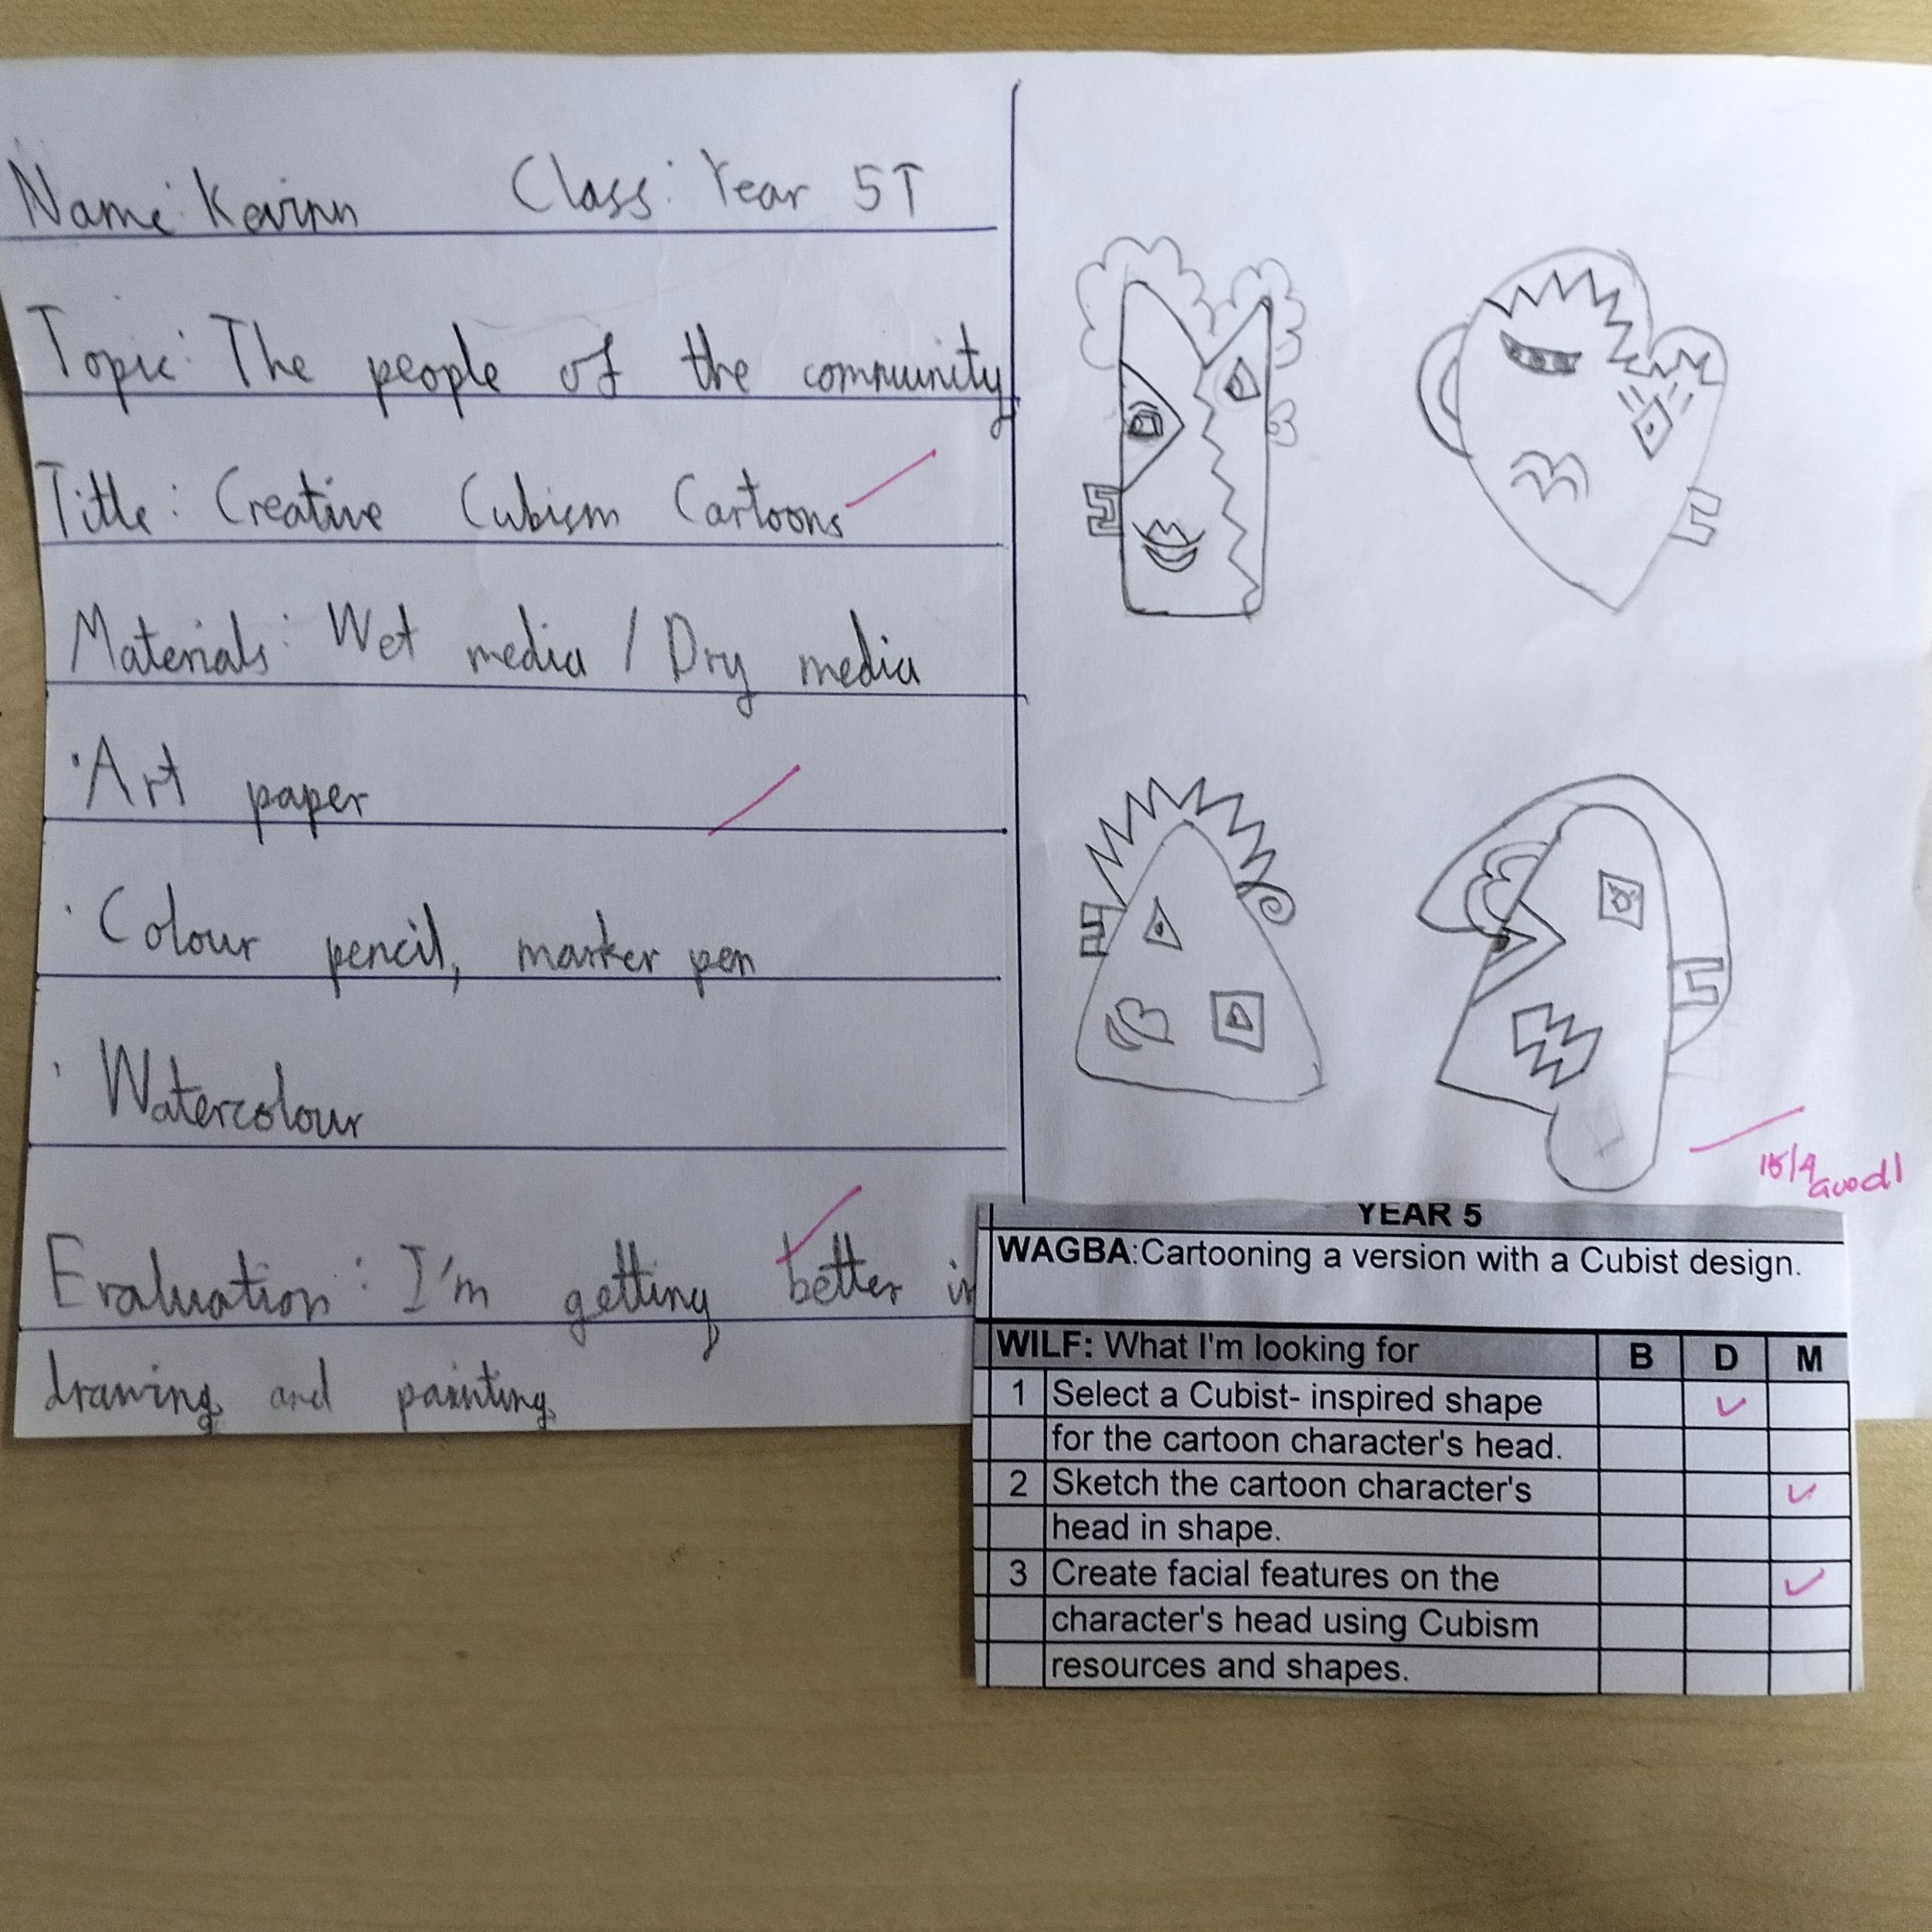 Name: Kevinn Class: Year 5T
Topic: The people of the community
Title: Creative Cubism Cartoons
Materials: Wet media / Dry media
· Art paper
· Colour pencil, marker pen
· Watercolour
Evaluation: I'm getting better in
drawing and painting
Good!
YEAR 5
WAGBA:Cartooning a version with a Cubist design.
WILF: What I'm looking for B D M
1 Select a Cubist- inspired shape
for the cartoon character's head.
2 Sketch the cartoon character's
head in shape.
3 Create facial features on the
character's head using Cubism
resources and shapes.